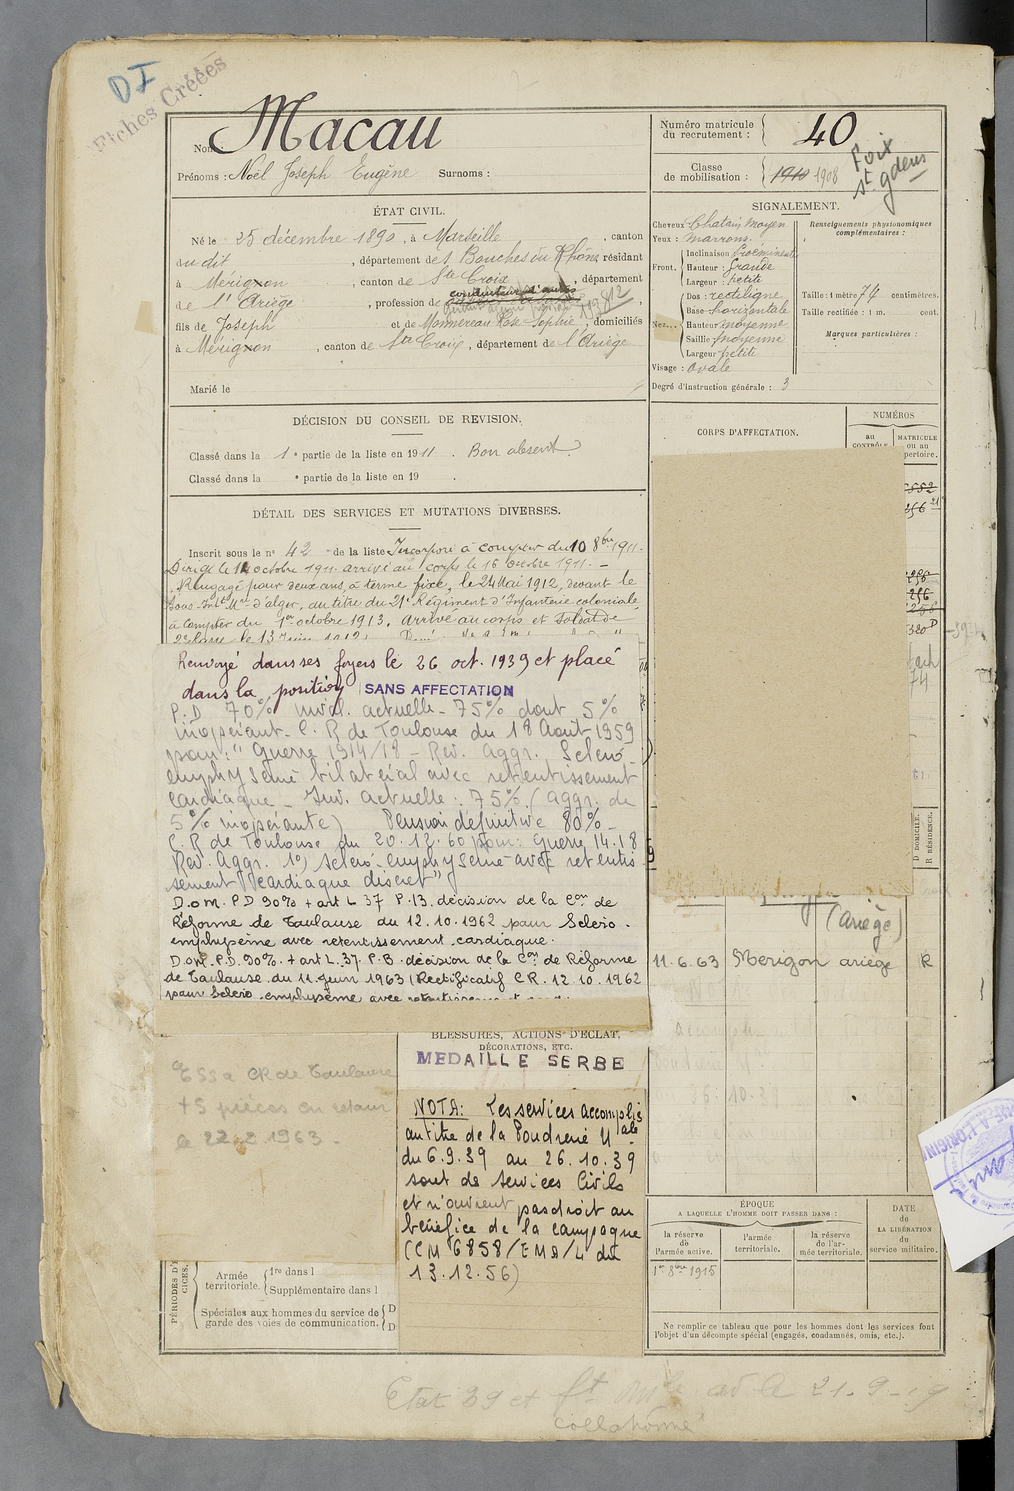 DI
Fiches Créées
Nom Macau
Prénoms : Noël Joseph Eugène Surnoms :
Numéro matricule du recrutement : 40
Classe de mobilisation : 1910 1908
Foix
St gdens
ÉTAT CIVIL.
Né le 25 décembre 1890, à Marseille, canton
du dit, département de 1 Bouches du Rhône résidant
à Mérignon, canton de Ste Croix, département
de l'Ariège, profession de conducteur d'autos
fils de Joseph et de Monnereau Rose Sophie, domiciliés
à Mérignon, canton de Ste Croix, département de l'Ariège
Marié le
SIGNALEMENT.
Cheveux Chatain Moyen
Yeux : marrons.
Front. Inclinaison Proéminent
Hauteur : Grande
Largeur : petite
Nez. Dos : rectiligne
Base horizontale
Hauteur moyenne
Saillie moyenne
Largeur petite
Visage : Ovale
Renseignements physionomiques complémentaires :
Taille : 1 mètre 74 centimètres.
Taille rectifiée : 1 m. cent.
Marques particulières :
Degré d'instruction générale : 3
DÉCISION DU CONSEIL DE REVISION.
Classé dans la 1e partie de la liste en 1911. Bon absent
Classé dans la e partie de la liste en 19 .
CORPS D'AFFECTATION.
NUMÉROS
au CONTRÔLE
MATRICULE ou au répertoire.
DÉTAIL DES SERVICES ET MUTATIONS DIVERSES.
Inscrit sous le no 42 de la liste Incorporé à compter du 10 8bre 1911.
Dirigé le 14 octobre 1911 arrivé au corps le 16 octobre 1911.
Rengagé pour deux ans, à terme fixe, le 24 Mai 1912, devant le
Sous Intt Mre d'alger, au titre du 21e Régiment d'Infanterie coloniale,
à compter du 1er octobre 1913. arrivé au corps et soldat de
2e classe le 13 Juin 1912.
Renvoyé dans ses foyers le 26 oct. 1939 et placé
dans la position SANS AFFECTATION
P.D 70% inval. actuelle - 75% dont 5%
inopérant. C.R de Toulouse du 18 Août 1959
pour : "Guerre 1914/18 - Rev. Aggr. Scléro
emphysème bilatéral avec retentissement
cardiaque - Inv. actuelle : 75% (aggr. de
5% inopérante) Pension définitive 80% -
C.R de Toulouse du 20.12.60 pour : Guerre 14.18
Rev. Aggr. 1°) scléro-emphysème avec retentis
sement cardiaque discret"
D.O.M. P.D 90% + art L 37 P.B. décision de la Con de
Réforme de Toulouse du 12.10.1962 pour Scléro.
emphysème avec retentissement cardiaque.
D.O.M. P.D. 90%. + art L.37. P.B. décision de la Con de Réforme
de Toulouse du 11 Juin 1963 (Rectificatif C.R. 12.10.1962
pour Scléro emphysème avec retentissement
D DOMICILE.
R RÉSIDENCE.
(Ariège)
11.6.63 Mérigon ariège R
BLESSURES, ACTIONS D'ÉCLAT,
DÉCORATIONS, ETC.
MEDAILLE SERBE
CR de Toulouse
+ 5 pièces en retour
le 22.2 1963 -
NOTA: Les services accomplis
au titre de la Poudrerie Nale
du 6.9.39 au 26.10.39
sont de services Civils
et n'ouvrent pas droit au
bénéfice de la campagne
(CM 6858/EMA/L du
13.12.56)
PÉRIODES D'EXERCICES.
Armée territoriale. 1re dans l
Supplémentaire dans l
Spéciales aux hommes du service de garde des voies de communication. D
D
ÉPOQUE
A LAQUELLE L'HOMME DOIT PASSER DANS :
la réserve de l'armée active.
l'armée territoriale.
la réserve de l'armée territoriale.
DATE
de
LA LIBÉRATION
du
service militaire.
1er 8bre 1915
Ne remplir ce tableau que pour les hommes dont les services font
l'objet d'un décompte spécial (engagés, condamnés, omis, etc.).
Etat 39 et
collationné